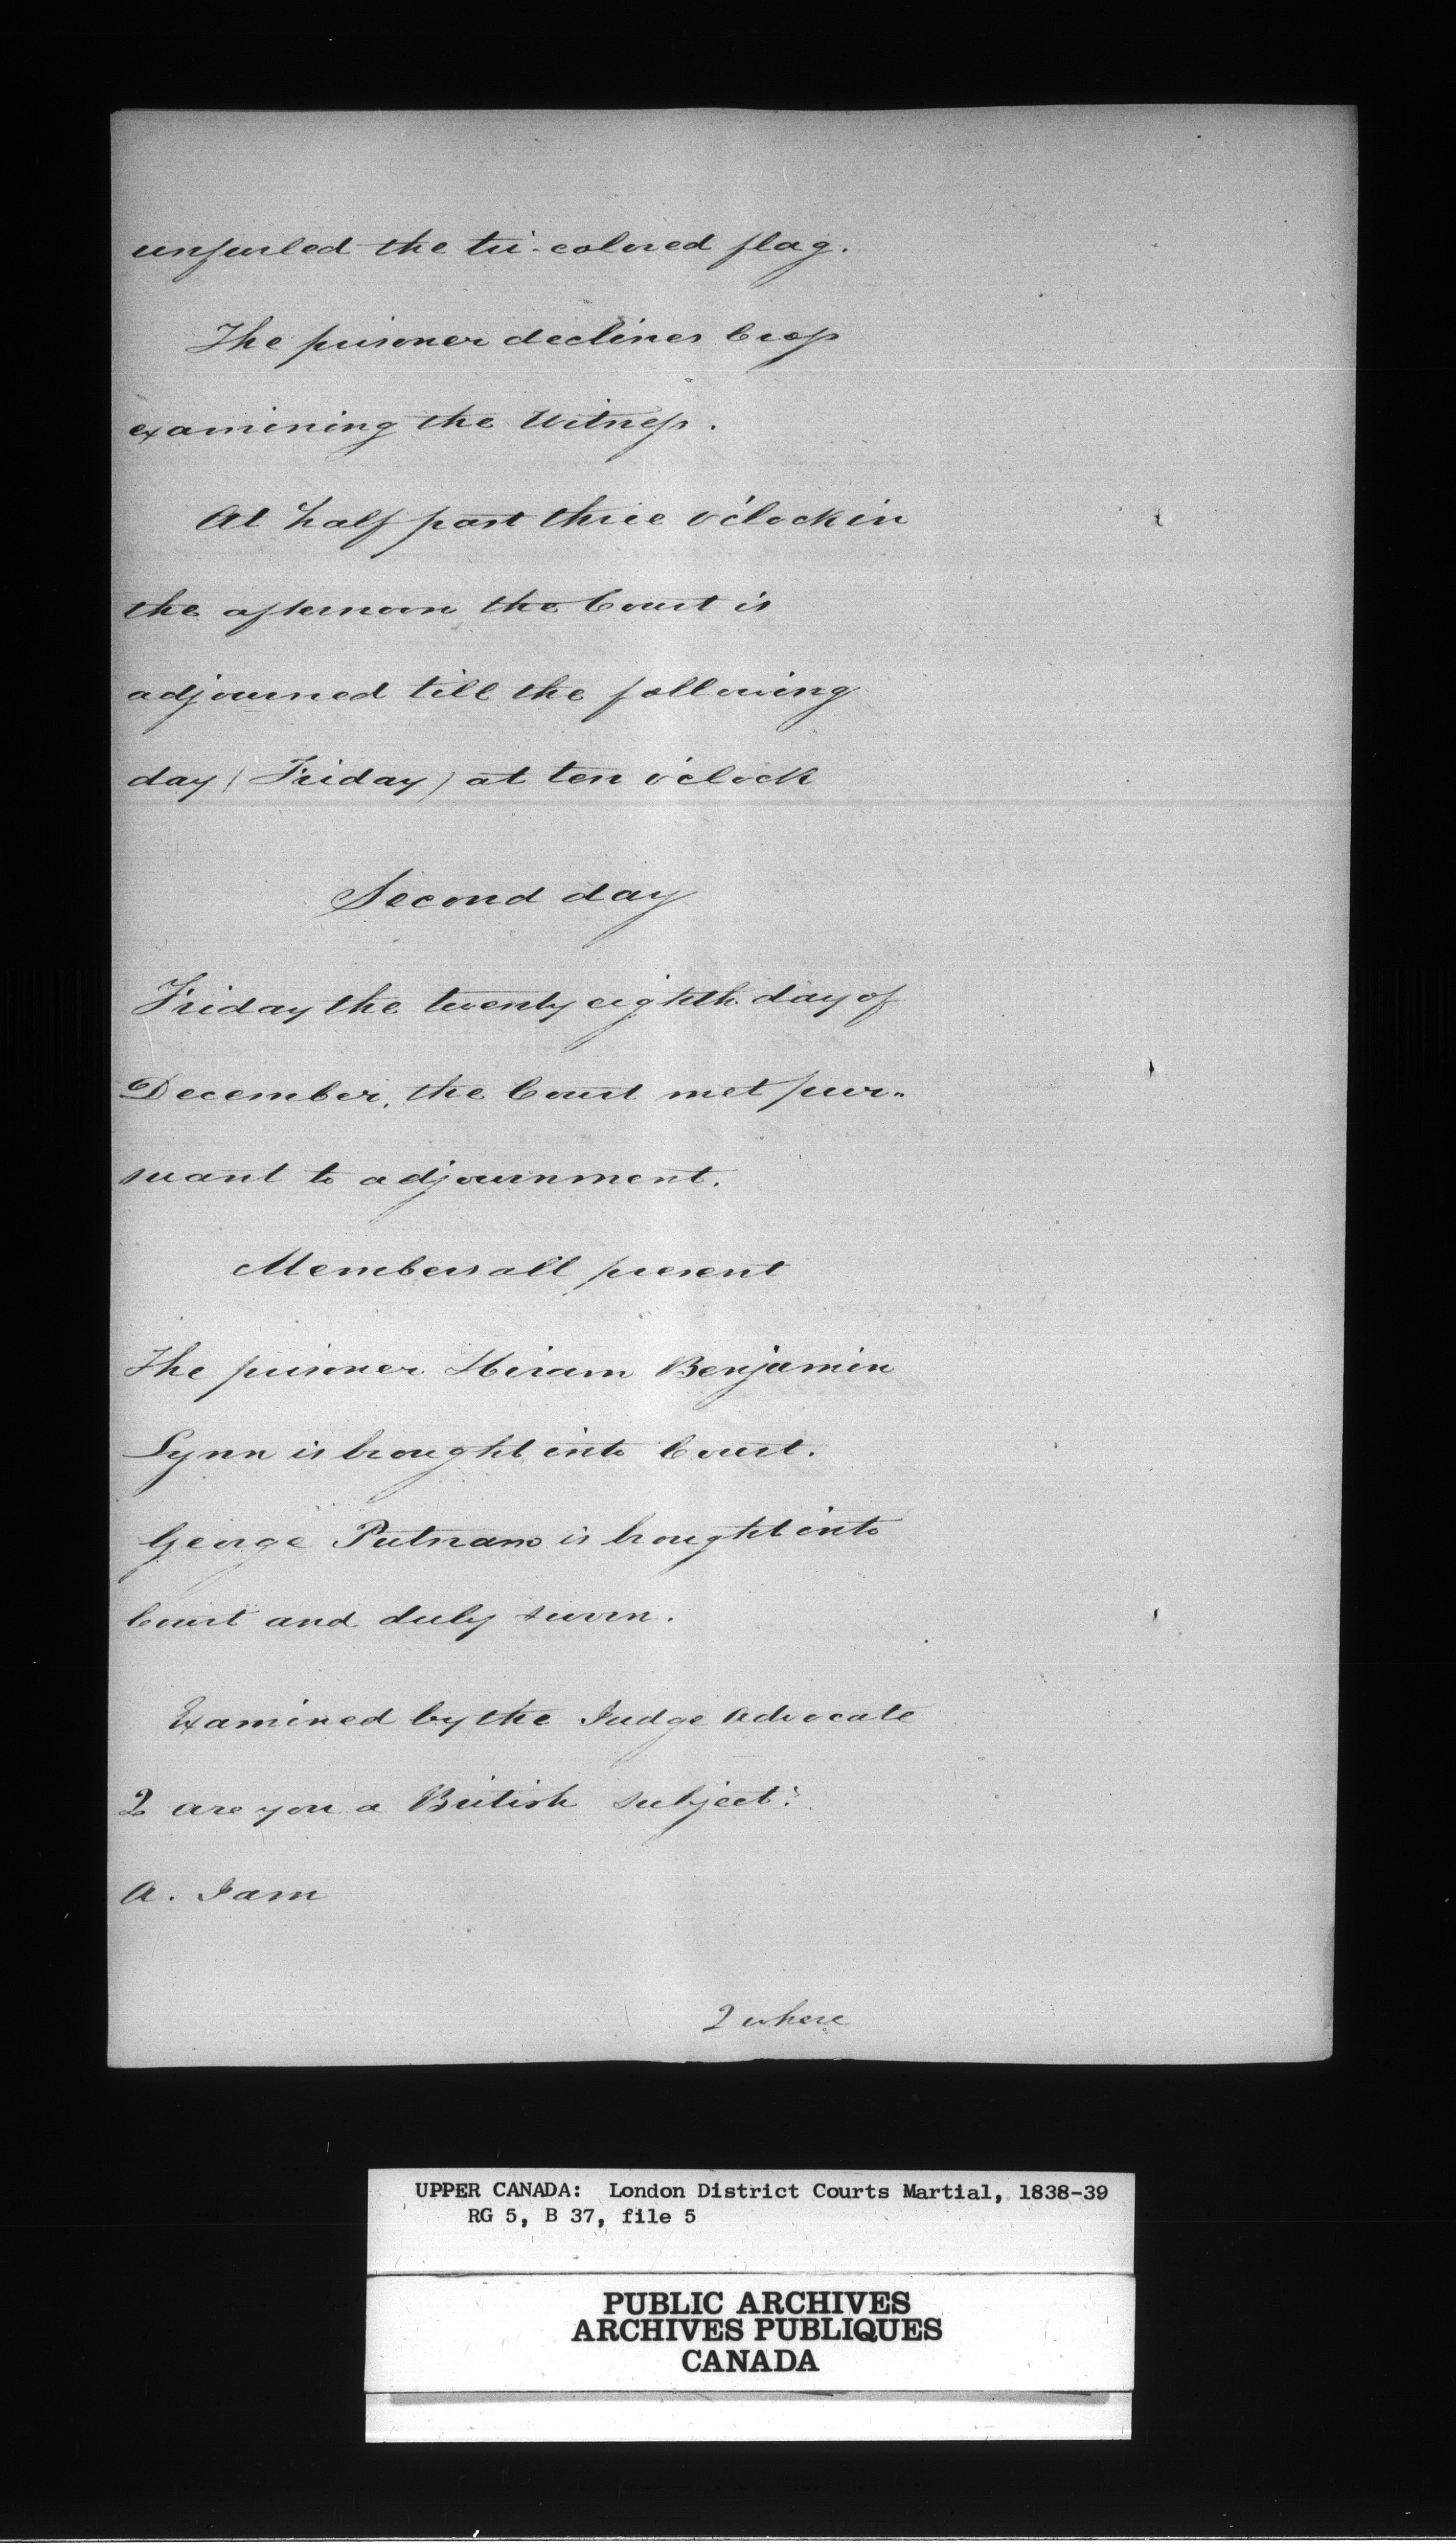 unfurled the tri-colored flag.
The prisoner declines Cross
examining the Witness.
At half past three o'clock in
the afternoon the Court is
adjourned till the following
day (Friday) at ten o'clock
Second day
Friday the twenty eighth day of
December, the Court met pur-
suant to adjournment.
Members all present
The prisoner Hiram Benjamin
Lynn is brought into Court.
George Putnam is brought into
Court and duly sworn.
Examined by the Judge Advocate
Q are you a British subject?
A. I am
Q where
UPPER CANADA: London District Courts Martial, 1838-39
RG 5, B 37, file 5
PUBLIC ARCHIVES
ARCHIVES PUBLIQUES
CANADA